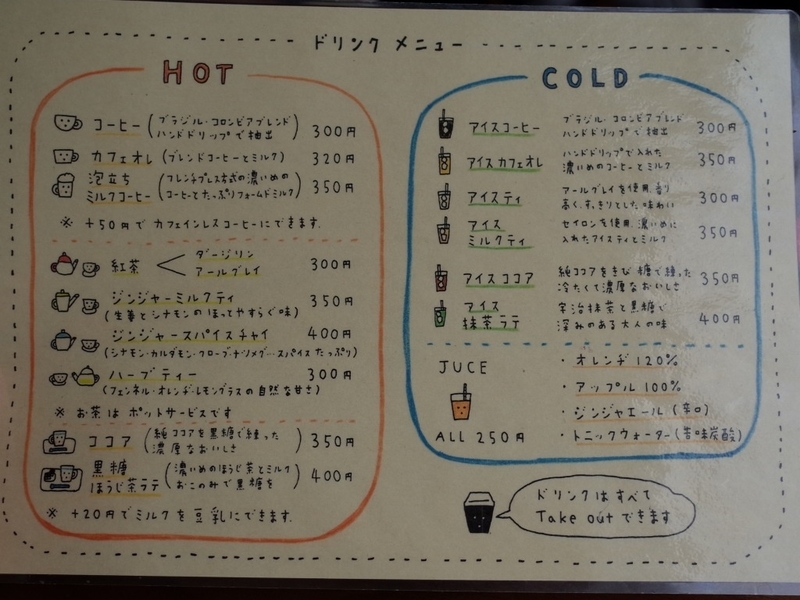 ドリンク メニュー
HOT
コーヒー (ブラジル・コロンビアブレンド
ハンドドリップで抽出) 300円
カフェオレ (ブレンドコーヒーとミルク) 320円
泡立ち
ミルクコーヒー (フレンチプレス方式の濃いめの
コーヒーとたっぷりフォームドミルク) 350円
※ +50円でカフェインレスコーヒーにできます.
紅茶 ダージリン
アールグレイ 300円
ジンジャーミルクティ 350円
(生姜とシナモンのほってやすらぐ味)
ジンジャースパイスチャイ 400円
(シナモン・カルダモン・クローブ・ナツメグ…スパイスたっぷり)
ハーブティー 300円
(フェンネル・オレンヂ・レモングラスの自然な甘さ)
※ お茶はポットサービスです
ココア (純ココアを黒糖で練った
濃厚なおいしさ) 350円
黒糖
ほうじ茶ラテ (濃いめのほうじ茶とミルク
おこのみで黒糖を) 400円
※ +20円でミルクを豆乳にできます.
COLD
アイスコーヒー ブラジル・コロンビアブレンド
ハンドドリップで抽出 300円
アイスカフェオレ ハンドドリップで入れた
濃いめのコーヒーとミルク 350円
アイスティ アールグレイを使用.香り
高く.すっきりとした味わい 300円
アイス
ミルクティ セイロンを使用.濃いめに
入れたアイスティとミルク 350円
アイスココア 純ココアをきび糖で練った
冷たくて濃厚なおいしさ 350円
アイス
抹茶ラテ 宇治抹茶と黒糖で
深みのある大人の味 400円
JUCE
ALL 250円
・オレンヂ 120%
・アップル 100%
・ジンジャエール (辛口)
・トニックウォーター (苦味炭酸)
ドリンクはすべて
Take outできます